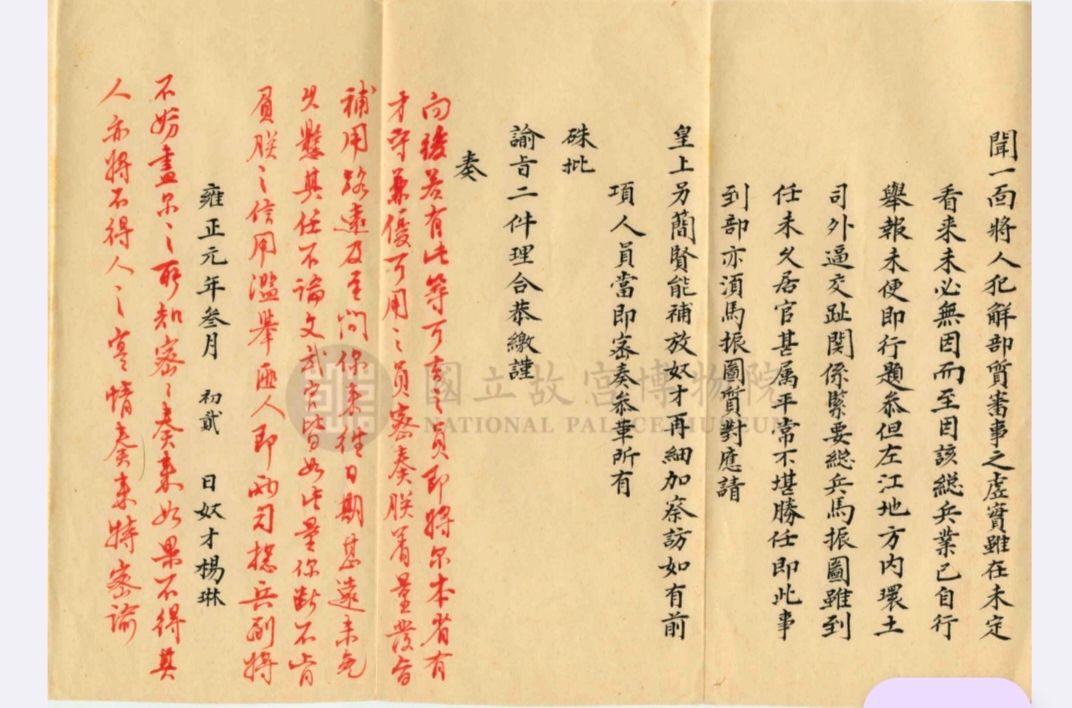 聞一面將人犯解部質審事之虛實雖在未定
看來未必無因而至因該總兵業已自行
舉報未便即行題叅但左江地方內環土
司外逼交趾関係緊要総兵馬振圖雖到
任未久居官甚属平常不堪勝任即此事
到部亦須馬振圖質對應請
皇上另蕳賢能補放奴才再細加察訪如有前
項人員當即密奏叅革所有
硃批
諭旨二件理合恭繳謹
奏
向後若有此等可去之員即將尔本省有
才守兼優可用之員密奏朕着量發旨
補用路遠及至問你来徃日期甚遠未免
久懸其任不論文武官皆如此量你断不肯
負朕之信用濫舉匪人即两司総兵副將
不妨盡尔之所知密之奏来如果不得其
人亦將不得人之實情奏来特密諭
雍正元年叁月 初貳 日奴才楊琳
國立故宮博物院
NATIONAL PALACE MUSEUM